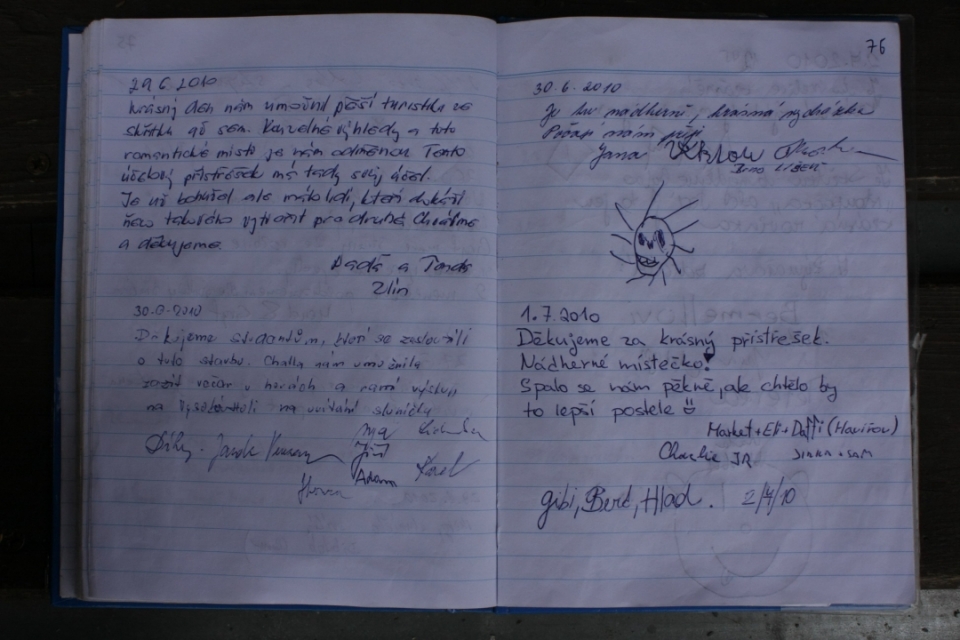 29.6.2010
Krásný den nám umožnil pěší turistka ze
až sem. Kouzelné výhledy a toto
romantické místo je nám odměnou. Tento
účelový přístřešek má tedy svůj účel.
Je už bohužel ale málo lidí, kteří dokáží
něco takového vytvořit pro druhé. Chválíme
a děkujeme.
Dáďa a Tonda
Zlín
30.6.2010
Děkujeme studentům, kteří se zasloužili
o tuto stavbu. Chatka nám umožnila
zažít večer v horách a ranní výstup
na uvítání sluníčka
Díky.
Jiří
Adam
Karel
76
30.6.2010
Je tu nádherně, krásná
Počasí nám přeje
Jana
Brno Líšeň
1.7.2010
Děkujeme za krásný přístřešek.
Nádherné místečko!
Spalo se nám pěkně, ale chtělo by
to lepší postele
Market+Eli+Daffi (Havířov)
Charlie JR
gibi, Berd, Hlad. 2/7/10